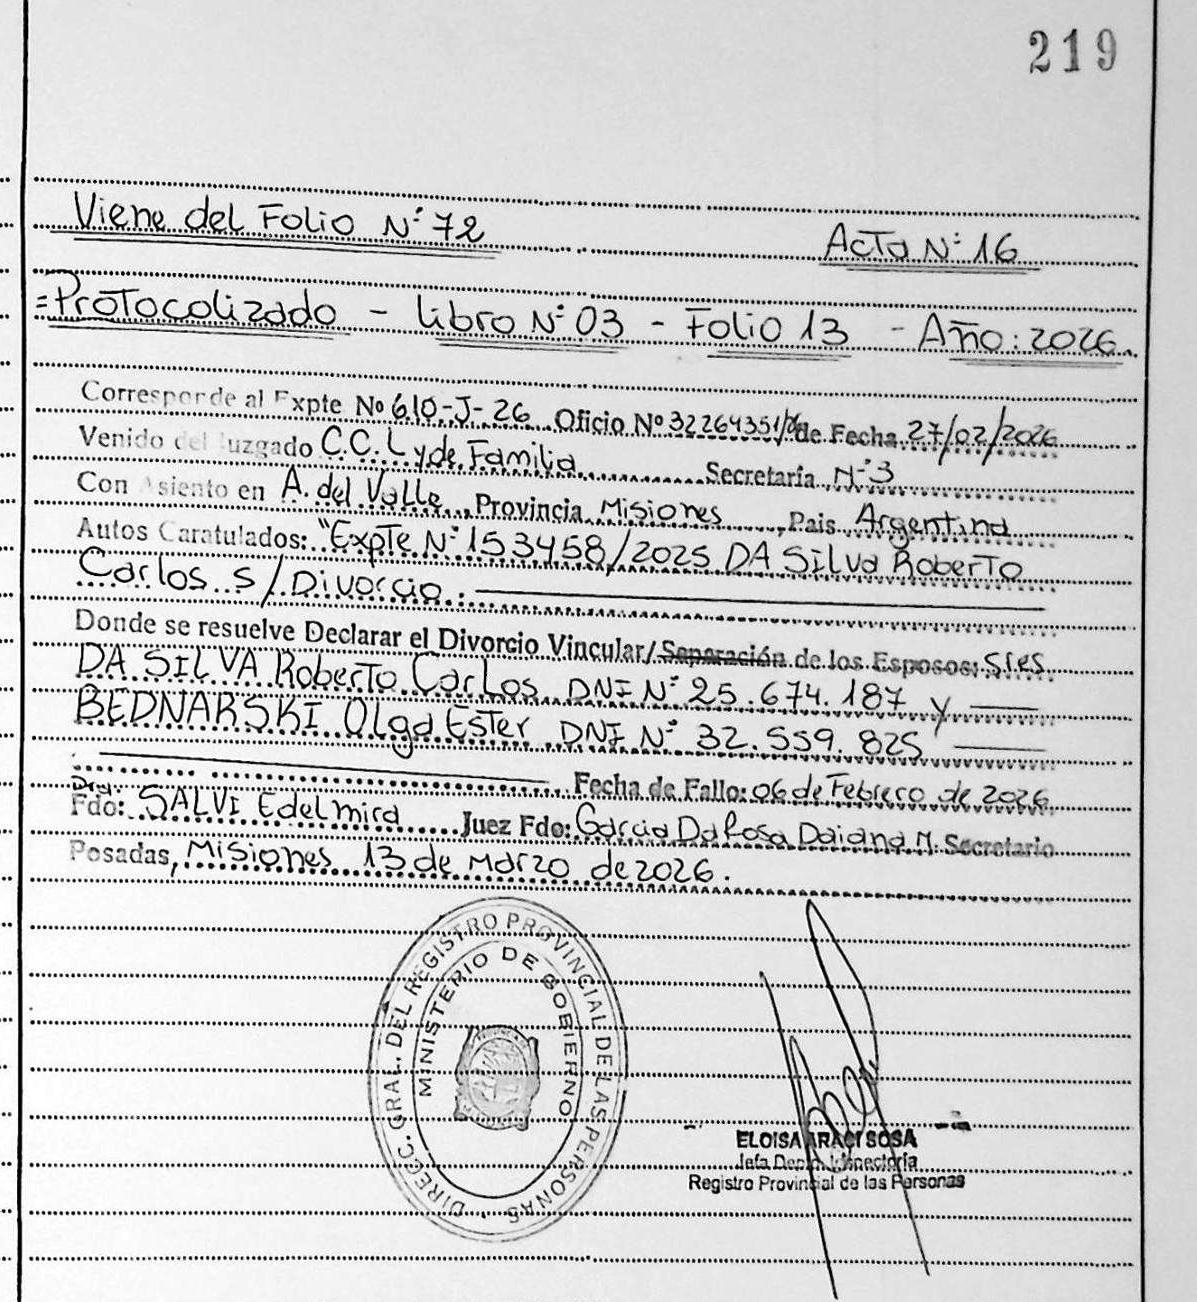 219
Viene del Folio Nº 72
Acta Nº 16
=Protocolizado - Libro Nº 03 - Folio 13 - Año: 2026.
Corresponde al Expte Nº 610-J-26 Oficio Nº 32264351/26 de Fecha 27/02/2026
Venido del Juzgado C.C.L y de Familia Secretaría Nº 3
Con Asiento en A. del Valle, Provincia Misiones, Pais Argentina
Autos Caratulados: "Expte Nº 153458/2025 DA SILVA Roberto
Carlos s/Divorcio.
Donde se resuelve Declarar el Divorcio Vincular/Separación de los Esposos; Sres
DA SILVA Roberto Carlos DNI Nº 25.674.187 y
BEDNARSKI Olga Ester DNI Nº 32.559.825
Fecha de Fallo: 06 de Febrero de 2026
Dra.
Fdo: SALVI Edelmira Juez Fdo: Garcia Da Rosa Daiana M. Secretario
Posadas, Misiones 13 de Marzo de 2026.
DIRECC. GRAL. DEL REGISTRO PROVINCIAL DE LAS PERSONAS
MINISTERIO DE GOBIERNO
ELOISA ARACI SOSA
Jefa Depto. Inspectoría
Registro Provincial de las Personas